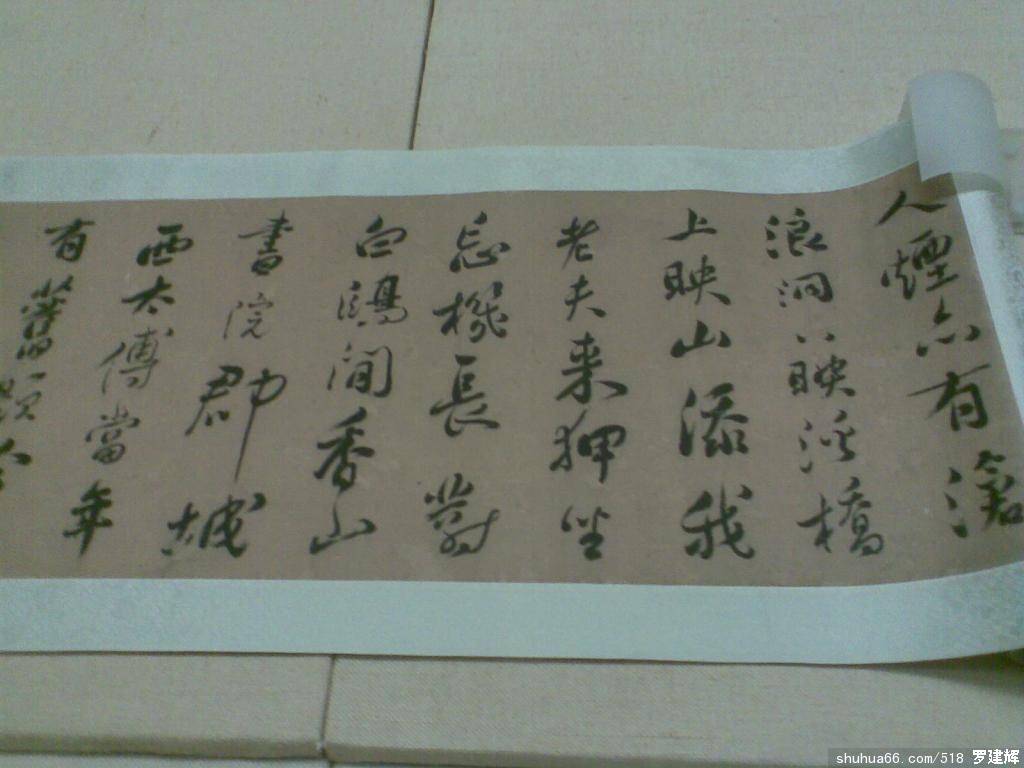 人煙亦有滄
浪洞下映溪橋
上映山添我
老夫来狎坐
忘機長對
白鷗間香山
書院郡城
西太傅當年
有舊題
shuhua66.com/518 罗建辉